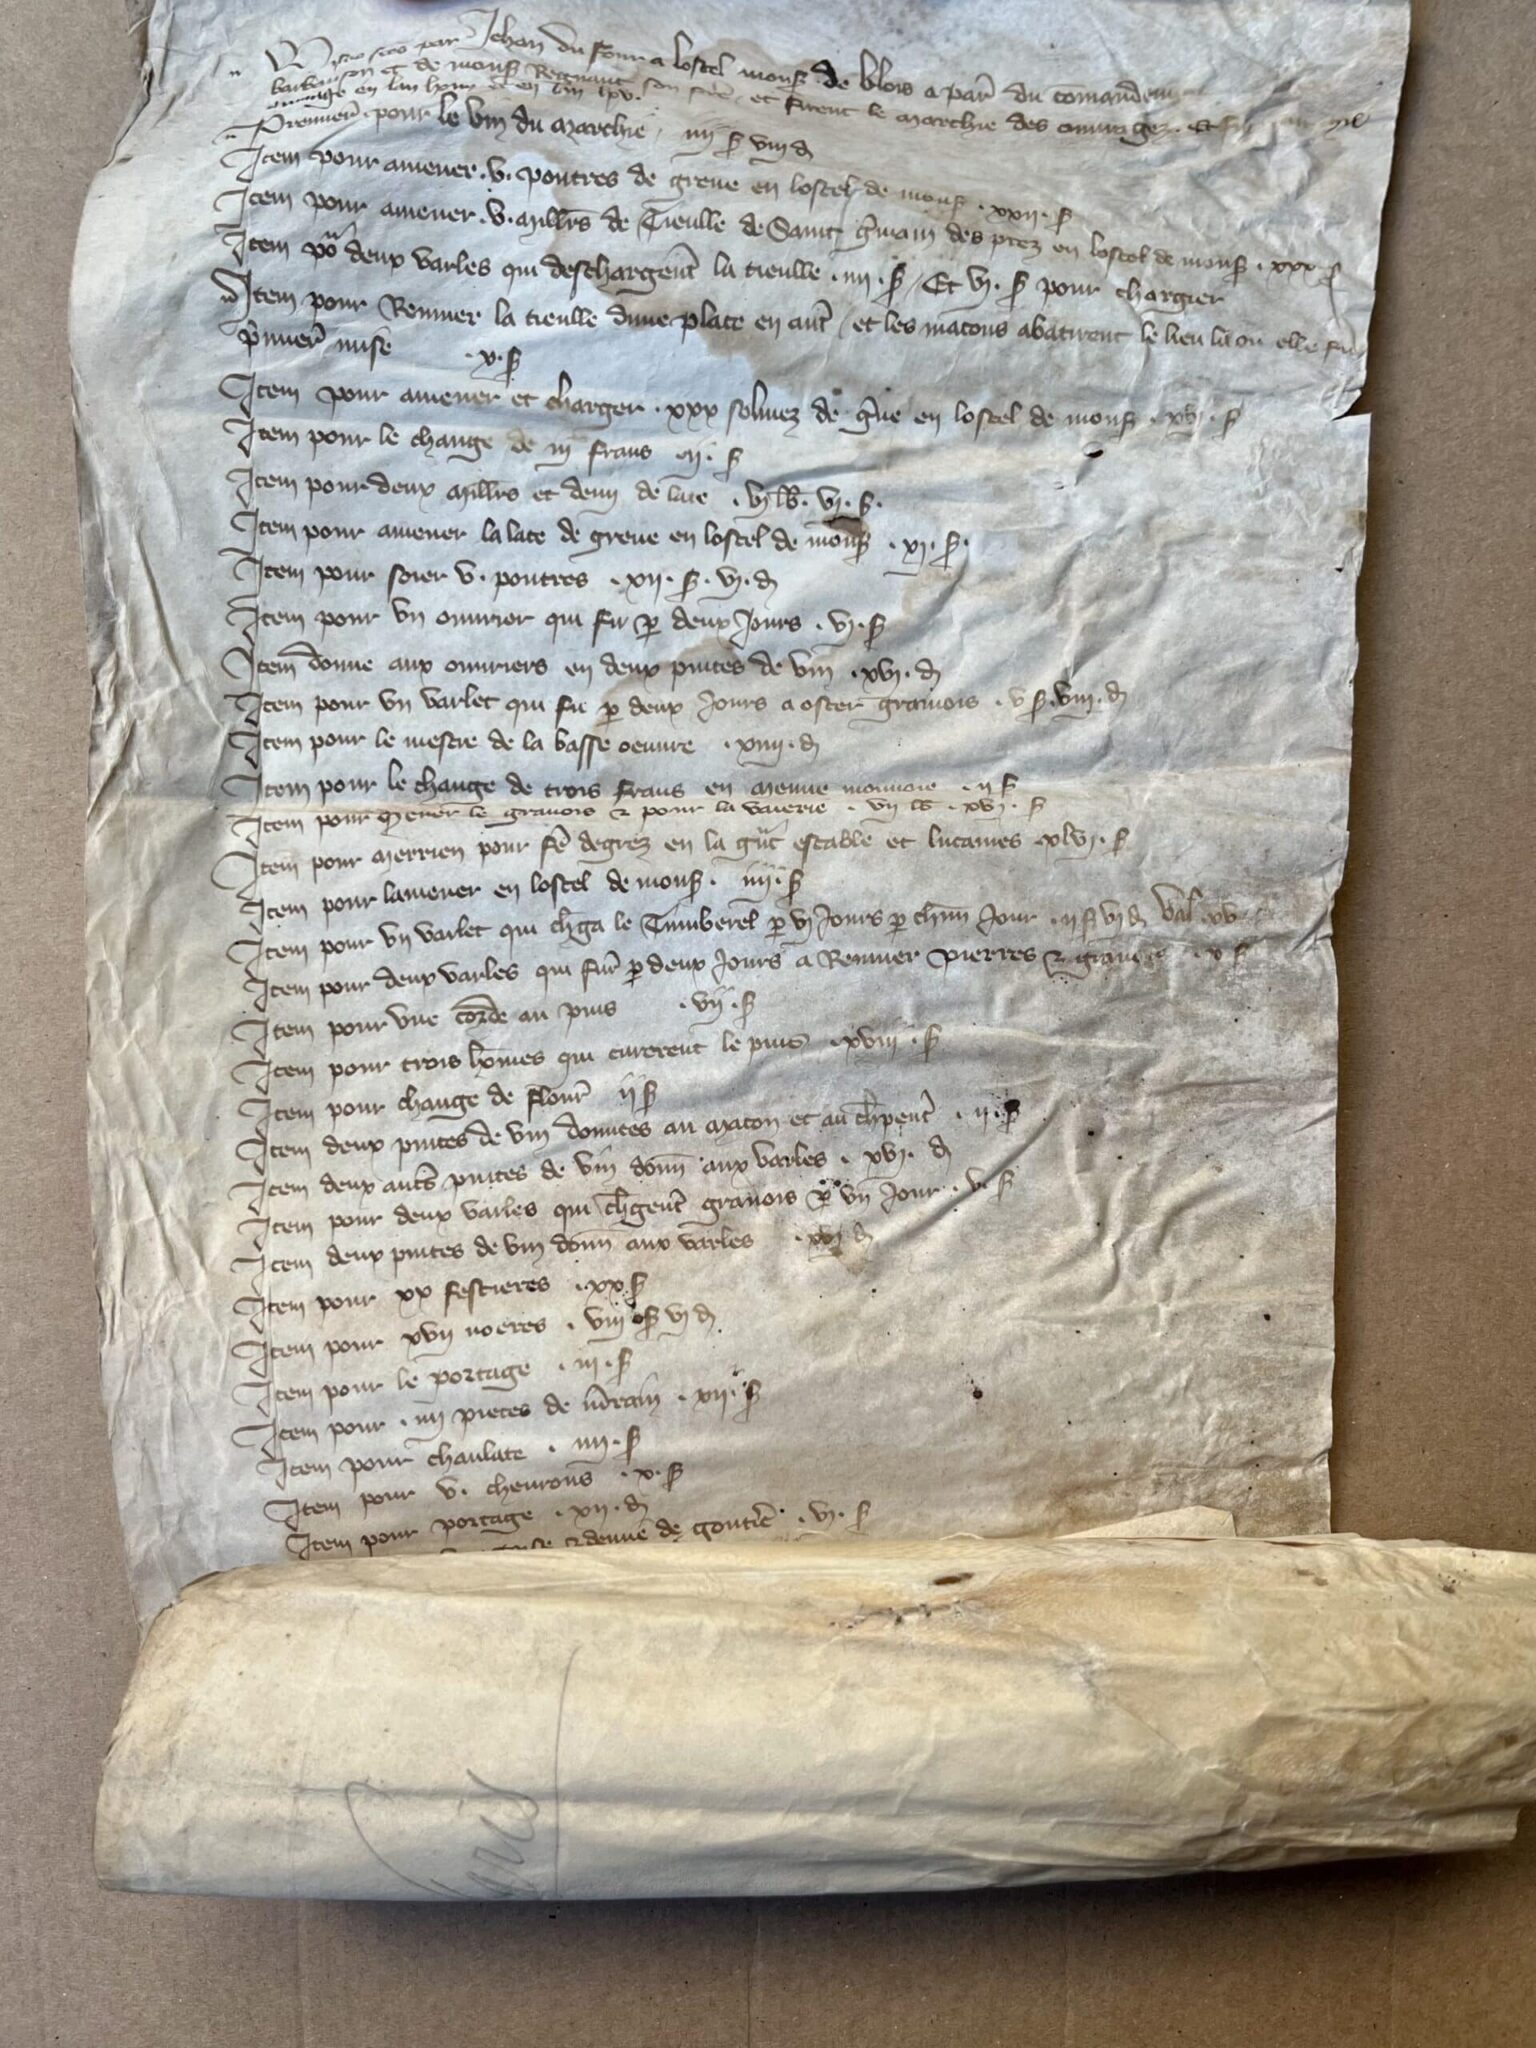 par Jehan du four a lostel mons de blois a par du comandem
et de mons Regnaut son et firent le marchie des ouurages
en lan lxiiii et en lan lxv.
Premier pour le vin du marchie iiii s viii d
Item pour amener .v. poutres de greue en lostel de mons . xxii . s
Item pour amener .v. millrs de Tieulle de Saint gmain des prez en lostel de mons . xxx s
Item po deux varles qui deschargent la tieulle . iii . s / Et vi . s pour chargier
Item pour Remuer la tieulle dune place en aut / et les macons abatirent le lieu la ou elle fu
pmier mise . v . s
Item pour amener et charger . xxx soliuez de gue en lostel de mons . xvi . s
Item pour le change de iii frans . ii . s
Item pour deux millrs et demi de late . vi lb . vi . s .
Item pour amener la late de greue en lostel de mons . xi . s .
Item pour soier v . poutres . xii . s . vi . d
Item pour vn ouurier qui fu p deux Jours . vi . s
Item donne aux ouuriers en deux pintes de vin . xvi . d
Item pour vn varlet qui fu p deux Jours a oster grauois . v s . viii . d
Item pour le mestre de la basse oeuure . xiiii . d
Item pour le change de trois frans en menue monnoie . ii s
Item pour mener le grauois & pour la vaierie . vii lb . xvi . s
Item pour merrien pour fe degrez en la gnt estable et lucarnes . xlvi . s
Item pour lamener en lostel de mons . iiii . s
Item pour vn varlet qui chga le Tumberel p vi Jours p chun Jour . ii s vi d val . xv
Item pour deux varles qui fur p deux Jours a Remuer pierres & grauois . x s
Item pour vne corde au puis . vii . s
Item pour trois homes qui curerent le puis . xviii . s
Item pour change de flour ii s
Item deux pintes de vin donnees au macon et au chpent . ii . s
Item deux auts pintes de vin donn aux varles . xvi . d
Item pour deux varles qui chgent grauois p vn Jour . v . s
Item deux pintes de vin donn aux varles . xvi d
Item pour xx festieres . xx s
Item pour xvii noeres . viii s vi d
Item pour le portage . iii . s
Item pour . iiii pieces de mrain . xii . s
Item pour chanlate . iiii . s
Item pour v . cheurons . x . s
Item pour portage . xii . d
& demie de goutie . vi . s